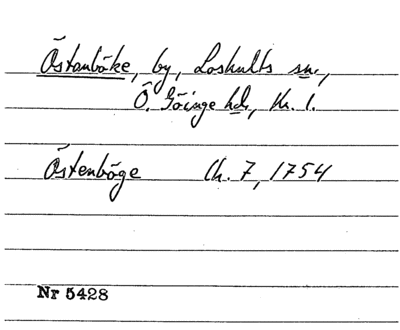 Östanböke, by, Loshults sn,
Ö. Göinge hd, Kr. l.
Östenböge Ch. 7, 1754
Nr 5428